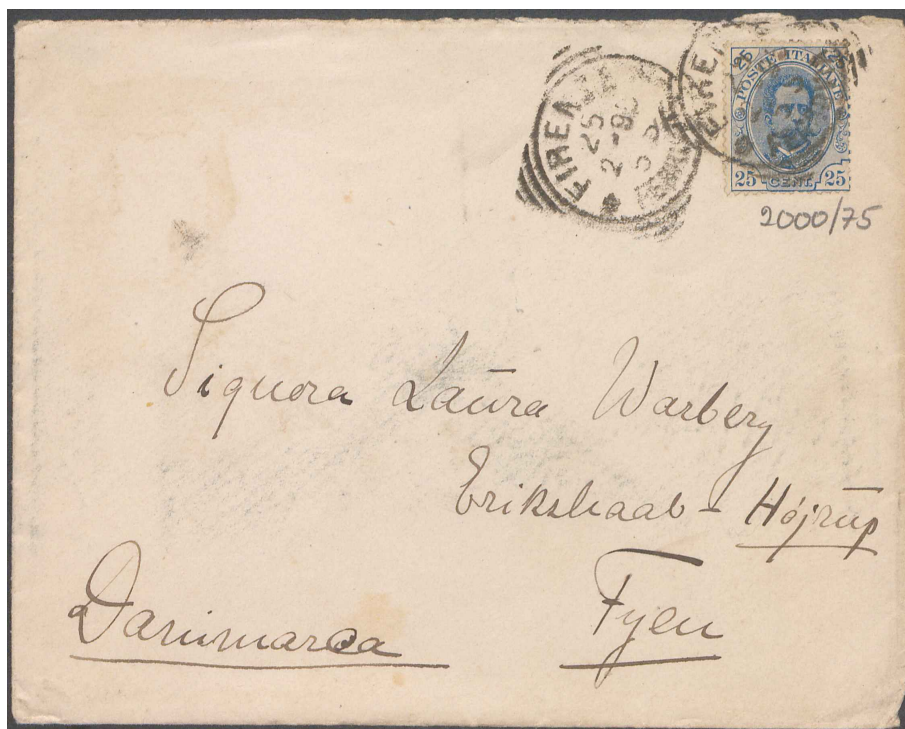 FIRENZE
25
2-9
POSTE ITALIANE
25 25
25 CENT. 25
2000/75
Signora Laura Warberg
Erikshaab - Højrup
Fyen
Danimarca